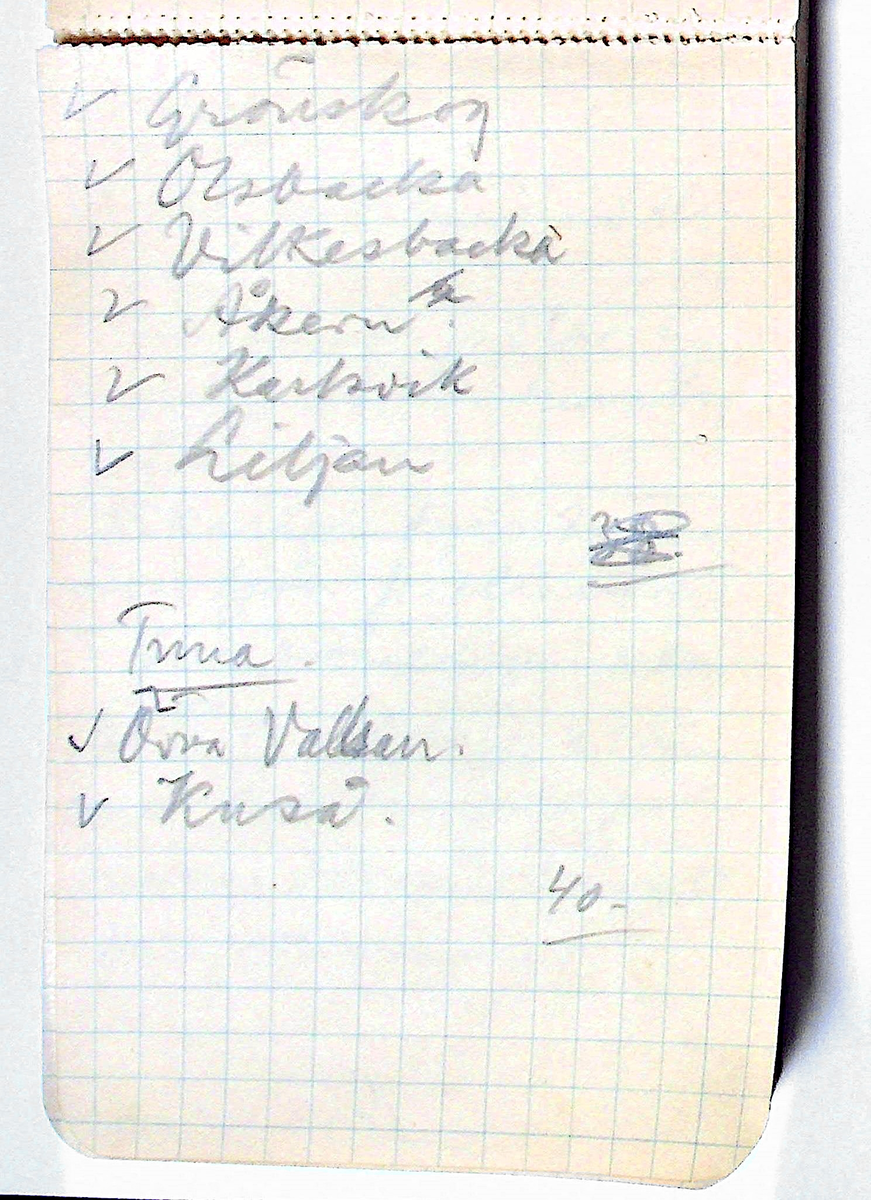 ✓ Grönskog
✓ Olsbacka
✓ Vilkesbacka
✓ Åkern
✓ Karlsvik
✓ Liljan
Tuna.
✓ Övra Vallsan.
✓ Kuså.
40-